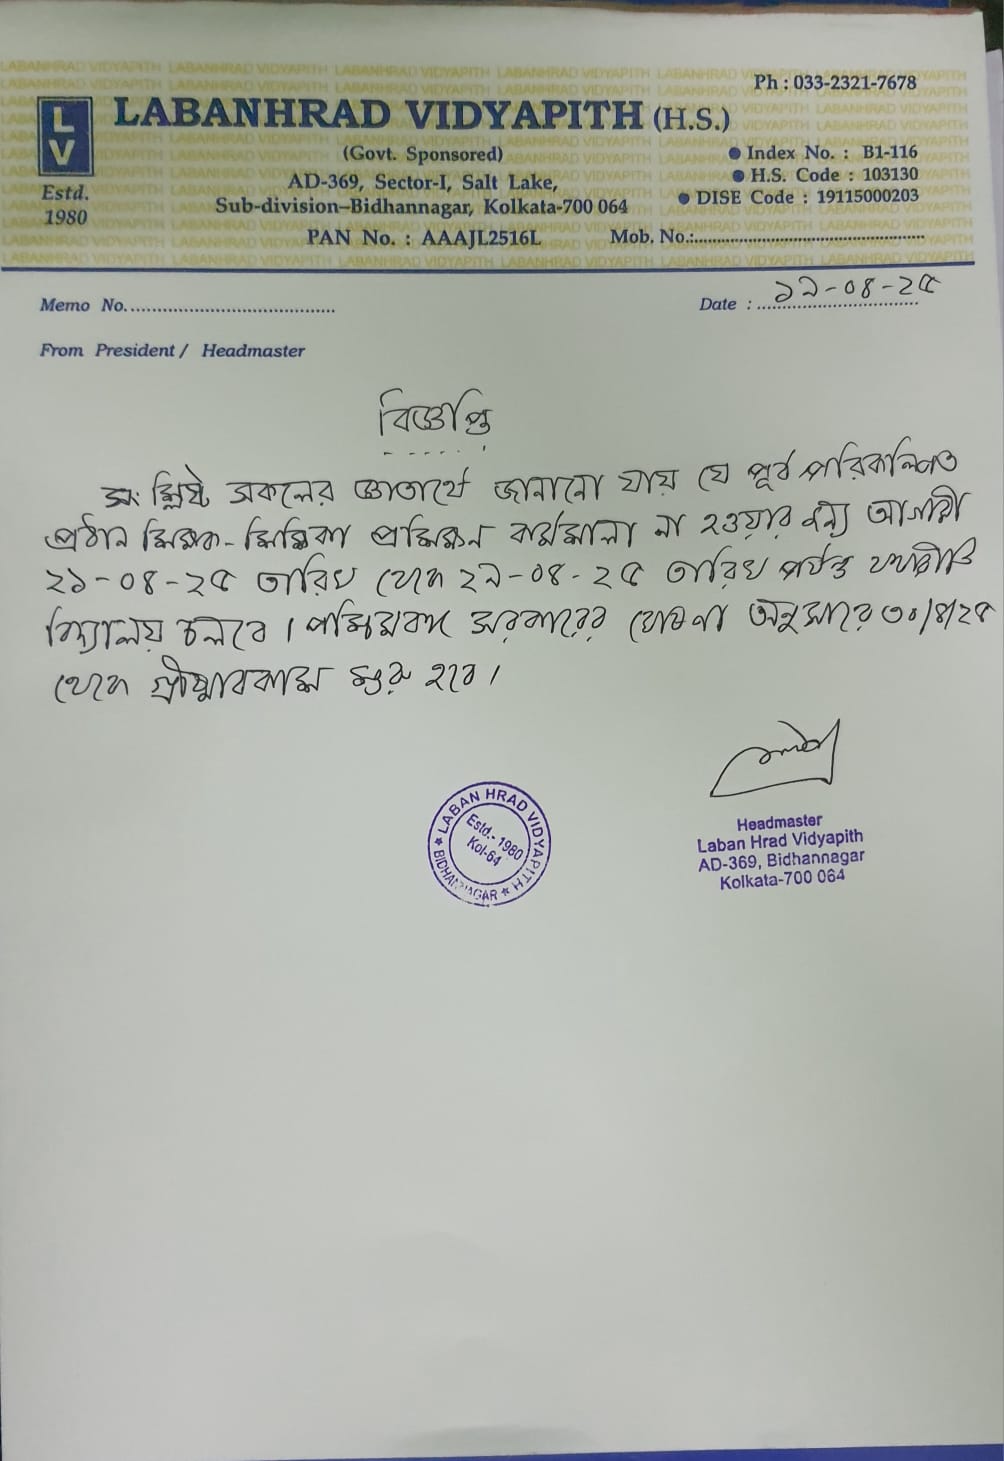 Ph : 033-2321-7678
LV
LABANHRAD VIDYAPITH (H.S.)
(Govt. Sponsored)
Index No. : B1-116
AD-369, Sector-I, Salt Lake,
H.S. Code : 103130
Estd.
1980
Sub-division–Bidhannagar, Kolkata-700 064
DISE Code : 19115000203
PAN No. : AAAJL2516L
Mob. No.:
Memo No.
Date : ১৯-০৪-২৫
From President / Headmaster
বিজ্ঞপ্তি
সংশ্লিষ্ট সকলের জ্ঞাতার্থে জানানো যায় যে পূর্ব পরিকল্পিত
প্রধান শিক্ষক-শিক্ষিকা প্রশিক্ষন কর্মশালা না হওয়ার জন্য আগামী
২১-০৪-২৫ তারিখ থেকে ২৯-০৪-২৫ তারিখ পর্যন্ত যথারীতি
বিদ্যালয় চলবে। পশ্চিমবঙ্গ সরকারের ঘোষণা অনুসারে ৩০/৪/২৫
থেকে গ্রীষ্মাবকাশ শুরু হবে।
LABAN HRAD VIDYAPITH
Estd.- 1980
Kol-64
BIDHANNAGAR
Headmaster
Laban Hrad Vidyapith
AD-369, Bidhannagar
Kolkata-700 064